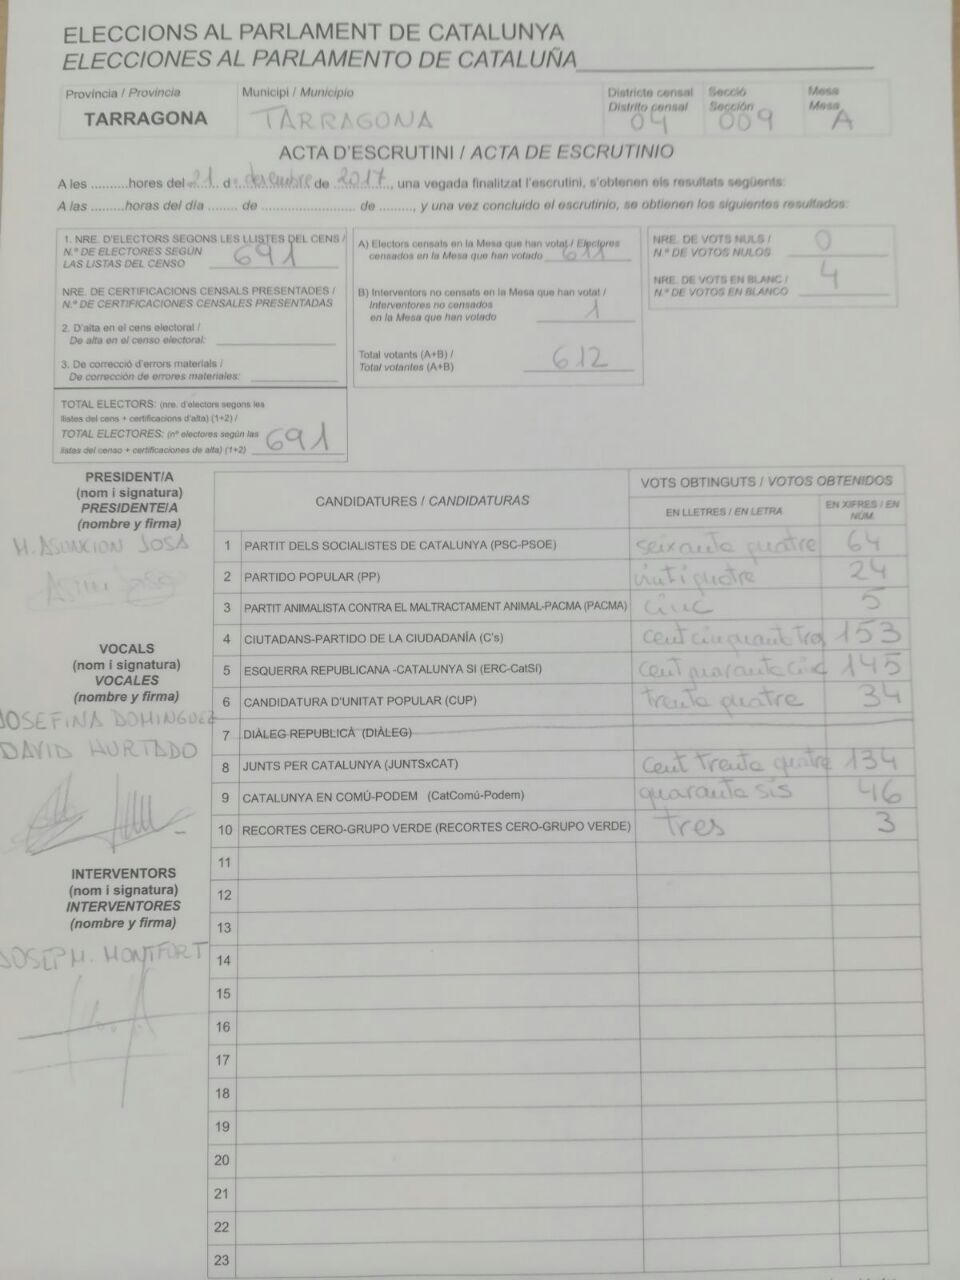 ELECCIONS AL PARLAMENT DE CATALUNYA
ELECCIONES AL PARLAMENTO DE CATALUÑA
Província / Provincia
TARRAGONA
Municipi / Municipio
TARRAGONA
Districte censal
Distrito censal
04
Secció
Sección
009
Mesa
Mesa
A
ACTA D'ESCRUTINI / ACTA DE ESCRUTINIO
A les .........hores del 21 de desembre de 2017, una vegada finalitzat l'escrutini, s'obtenen els resultats següents:
A las .........horas del día ....... de ...................... de ........, y una vez concluido el escrutinio, se obtienen los siguientes resultados:
1. NRE. D'ELECTORS SEGONS LES LLISTES DEL CENS /
N.º DE ELECTORES SEGÚN
LAS LISTAS DEL CENSO 691
NRE. DE CERTIFICACIONS CENSALS PRESENTADES /
N.º DE CERTIFICACIONES CENSALES PRESENTADAS
2. D'alta en el cens electoral /
De alta en el censo electoral:
3. De correcció d'errors materials /
De corrección de errores materiales:
TOTAL ELECTORS: (nre. d'electors segons les
llistes del cens + certificacions d'alta) (1+2) /
TOTAL ELECTORES: (nº electores según las
listas del censo + certificaciones de alta) (1+2) 691
A) Electors censats en la Mesa que han votat / Electores
censados en la Mesa que han votado 611
B) Interventors no censats en la Mesa que han votat /
Interventores no censados
en la Mesa que han votado 1
Total votants (A+B) /
Total votantes (A+B) 612
NRE. DE VOTS NULS /
N.º DE VOTOS NULOS 0
NRE. DE VOTS EN BLANC /
N.º DE VOTOS EN BLANCO 4
PRESIDENT/A
(nom i signatura)
PRESIDENTE/A
(nombre y firma)
M. ASUNCION JOSA
VOCALS
(nom i signatura)
VOCALES
(nombre y firma)
JOSEFINA DOMINGUEZ
DAVID HURTADO
INTERVENTORS
(nom i signatura)
INTERVENTORES
(nombre y firma)
JOSEP M. MONTFORT
CANDIDATURES / CANDIDATURAS
VOTS OBTINGUTS / VOTOS OBTENIDOS
EN LLETRES / EN LETRA
EN XIFRES / EN
NÚM.
1 PARTIT DELS SOCIALISTES DE CATALUNYA (PSC-PSOE) seixanta quatre 64
2 PARTIDO POPULAR (PP) vinti quatre 24
3 PARTIT ANIMALISTA CONTRA EL MALTRACTAMENT ANIMAL-PACMA (PACMA) cinc 5
4 CIUTADANS-PARTIDO DE LA CIUDADANÍA (C's) cent cinquanta tres 153
5 ESQUERRA REPUBLICANA -CATALUNYA SI (ERC-CatSí) cent quaranta cinc 145
6 CANDIDATURA D'UNITAT POPULAR (CUP) trenta quatre 34
7 DIÀLEG REPUBLICÀ (DIÀLEG)
8 JUNTS PER CATALUNYA (JUNTSxCAT) cent trenta quatre 134
9 CATALUNYA EN COMÚ-PODEM (CatComú-Podem) quaranta sis 46
10 RECORTES CERO-GRUPO VERDE (RECORTES CERO-GRUPO VERDE) tres 3
11
12
13
14
15
16
17
18
19
20
21
22
23